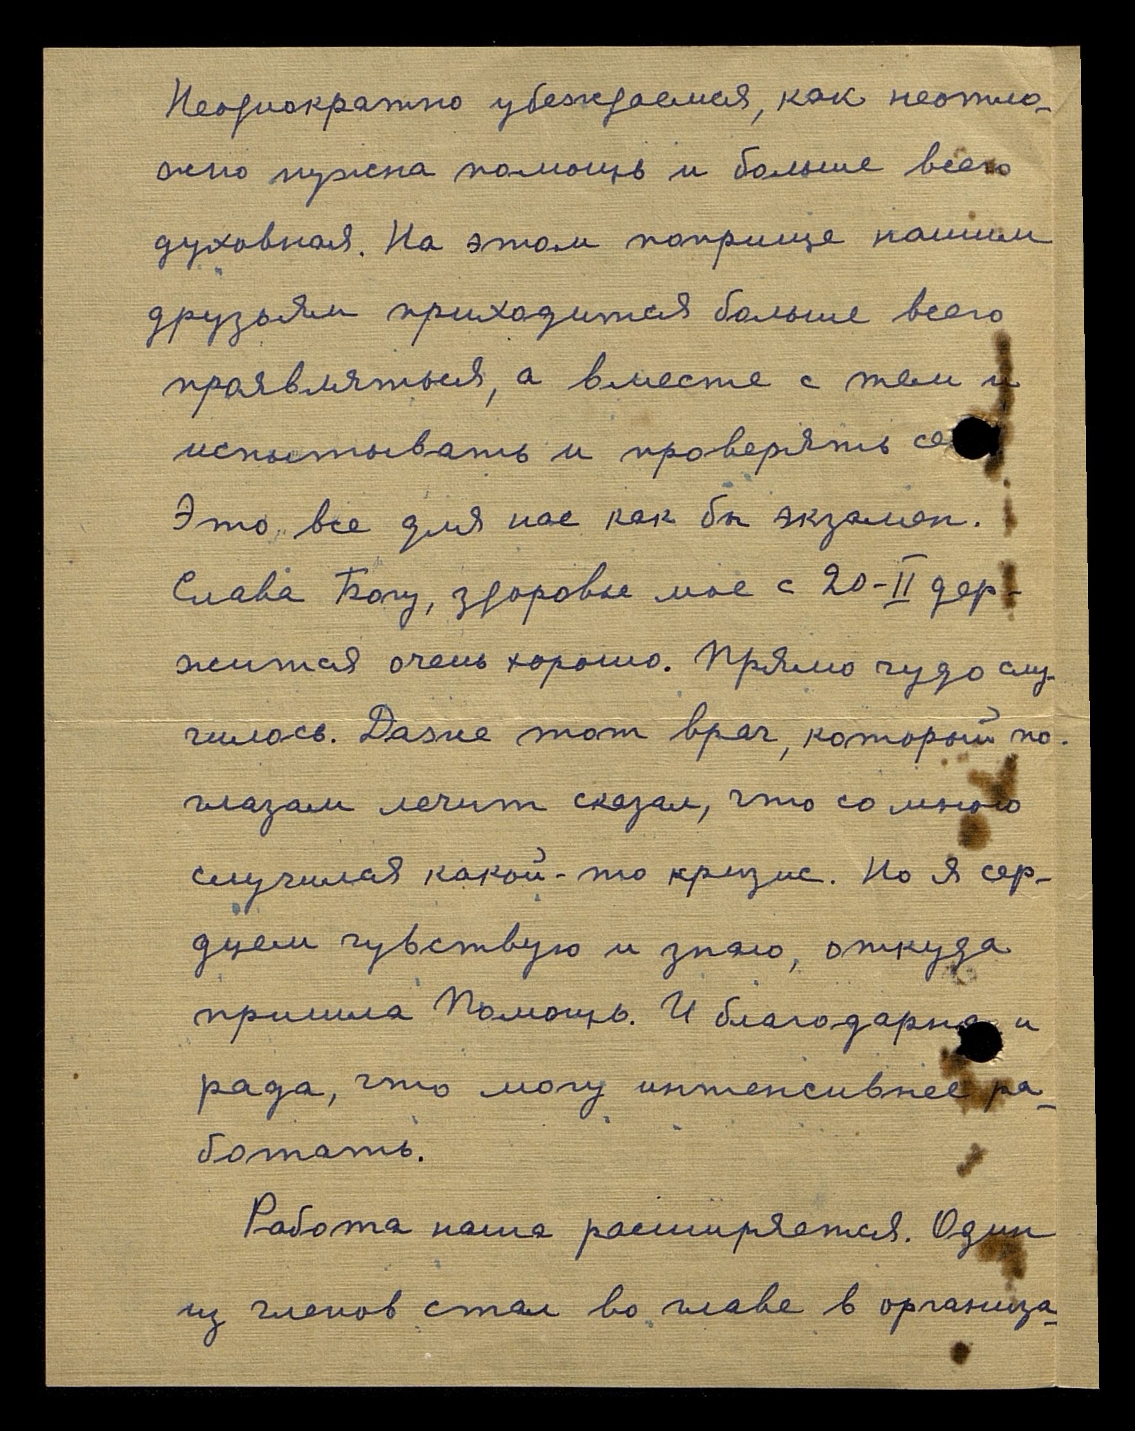 Неоднократно убеждаемся, как неотло-
жно нужна помощь и больше всего
духовная. На этом поприще нашим
друзьям приходится больше всего
проявляться, а вместе с тем и
испытывать и проверять
Это все для нас как бы экзамен.
Слава Богу, здоровье мое с 20-II дер-
жится очень хорошо. Прямо чудо слу-
чилось. Даже тот врач, который по
глазам лечит сказал, что со мною
случился какой-то кризис. Но я сер-
дцем чувствую и знаю, откуда
пришла Помощь. И благодарна и
рада, что могу интенсивнее ра-
ботать.
Работа наша расширяется. Один
из членов стал во главе в организа-